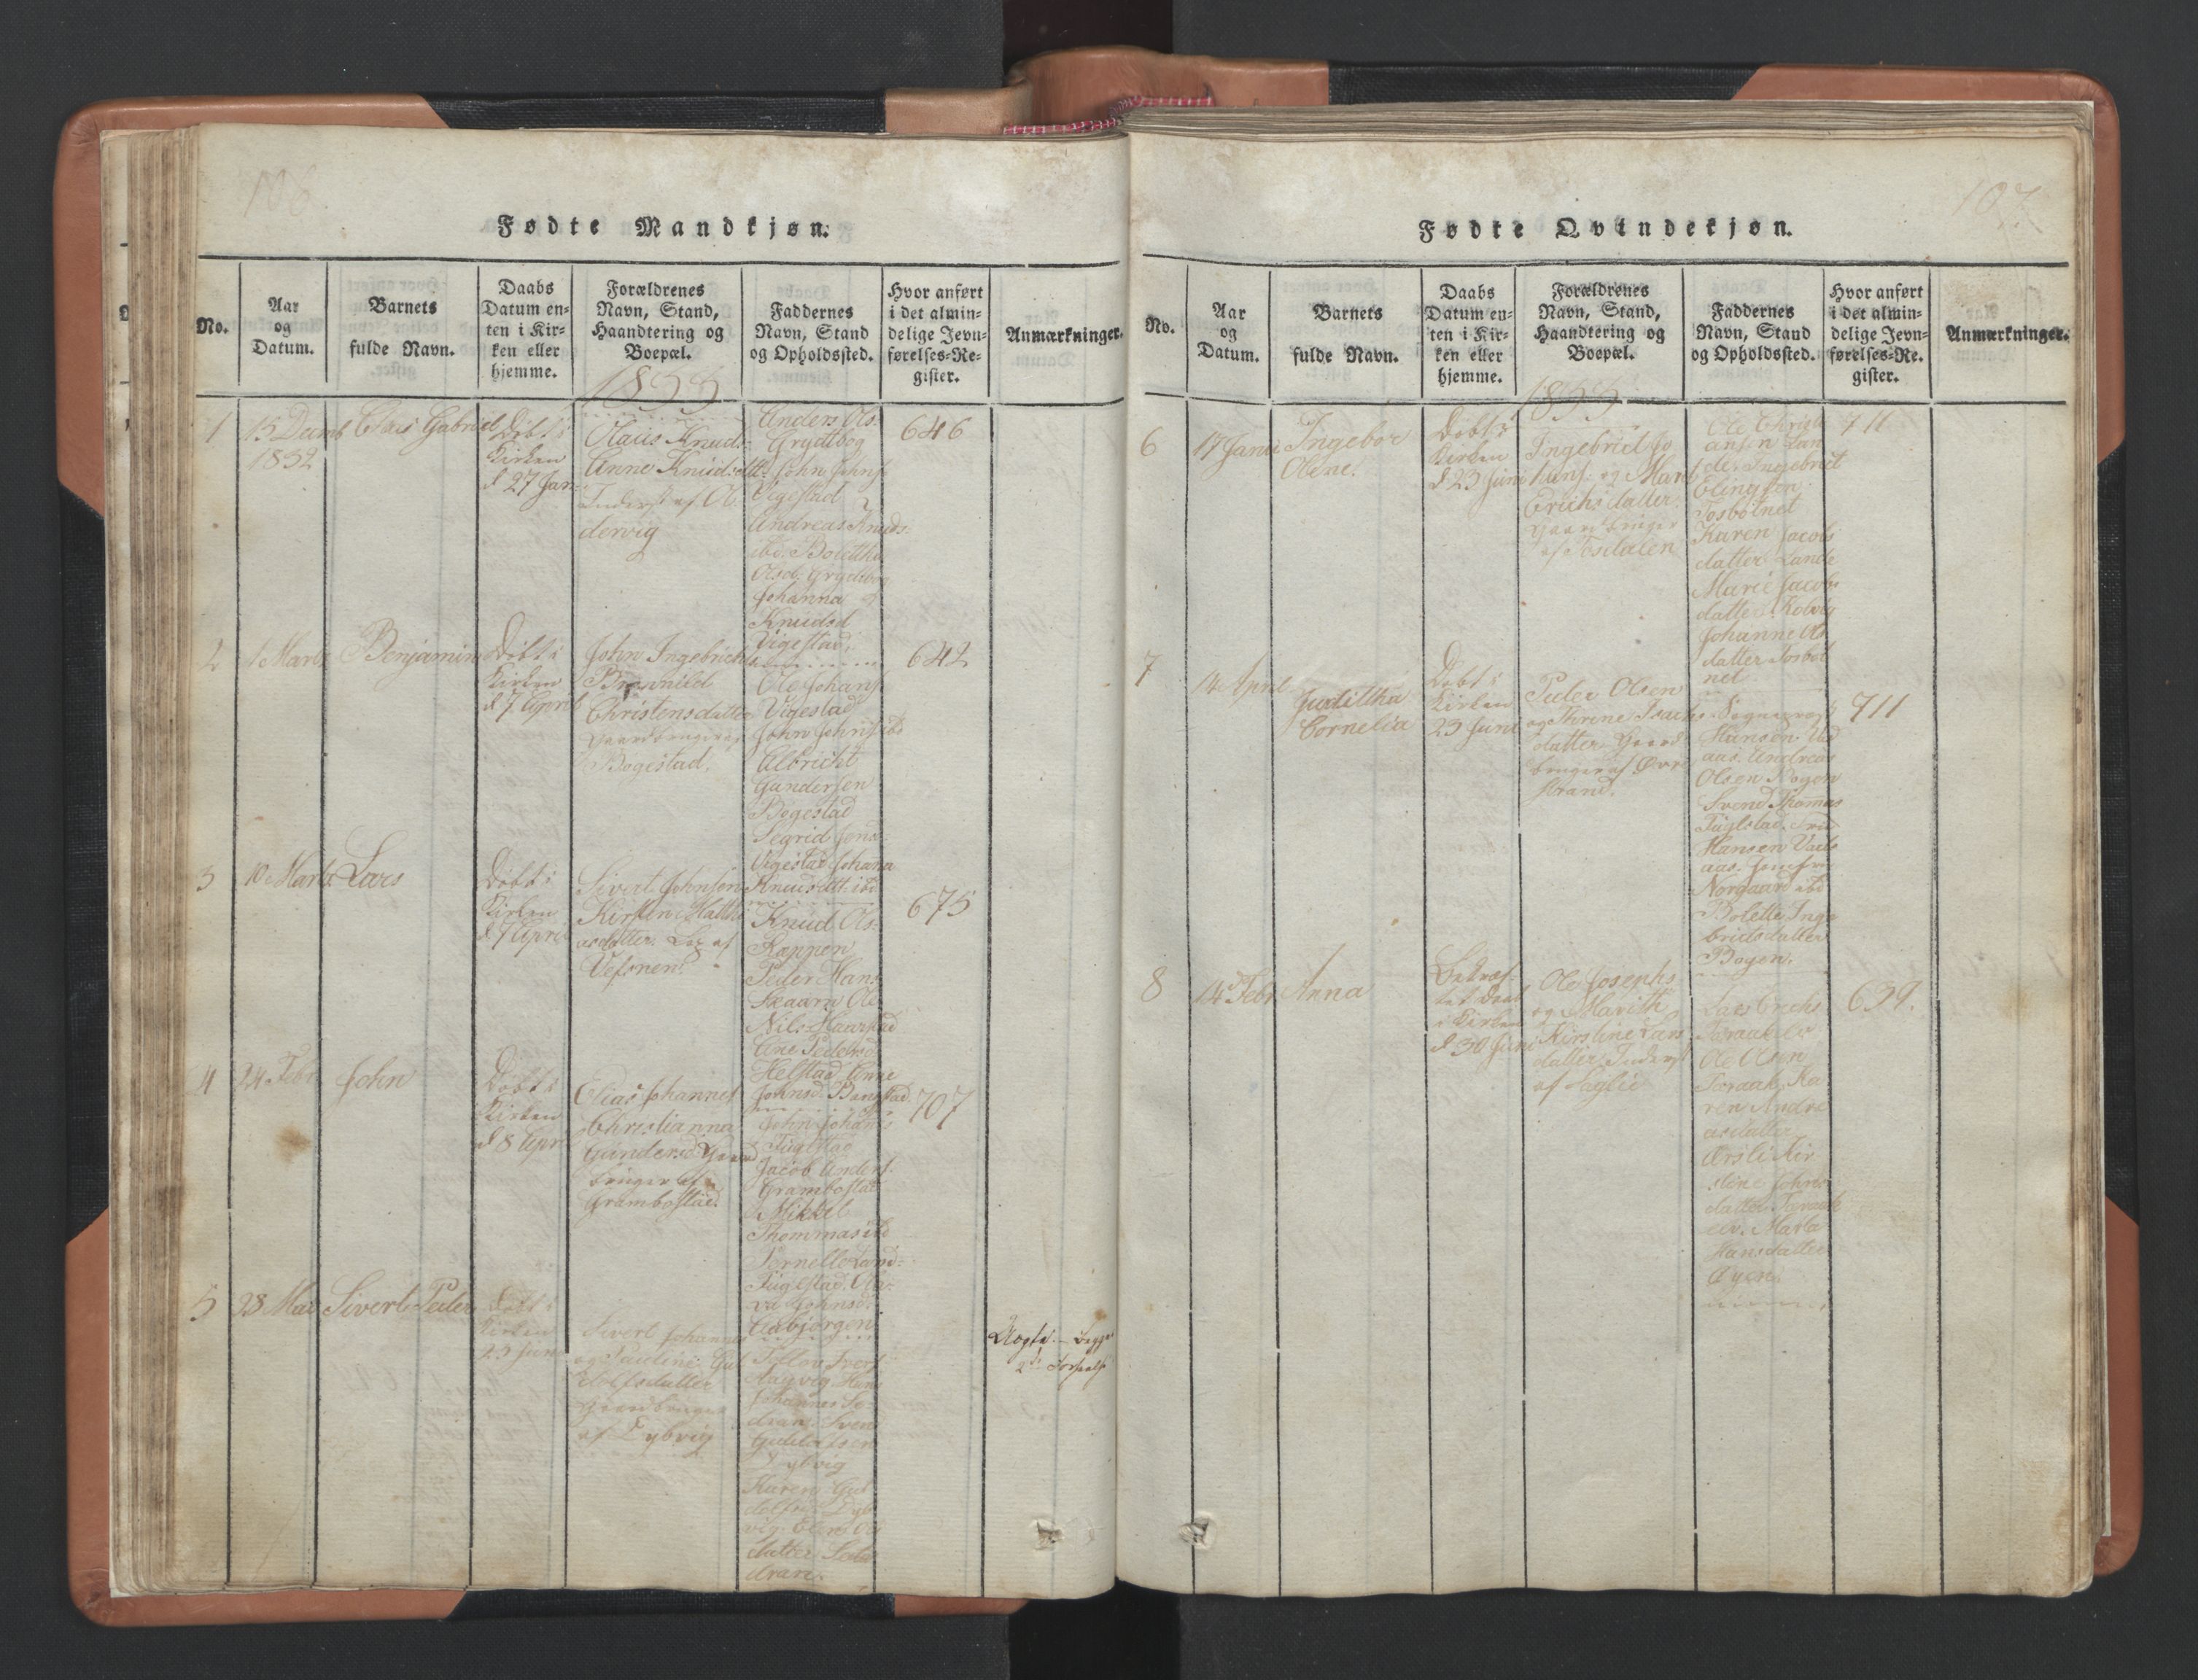 106.
Fødte Mandkjøn.
No.
Aar
og
Datum.
Barnets
fulde Navn.
Daabs
Datum en-
ten i Kir-
ken eller
hjemme.
Forældrenes
Navn, Stand,
Haandtering og
Boepæl.
Faddernes
Navn, Stand
og Opholdssted.
Hvor anført
i det almin-
delige Jevn-
førelses-Re-
gister.
Anmærkninger.
1833
1
15 Decmb
1832
Claus Gabriel
Døbt i
Kirken
d 27 Jan:
Olaus Knuds:
Anne Knudsdtt:
Inderst af O
dervig
Anders Ols:
Grydtbog
John Johns
Vigestad
Andreas Knuds:
ibd. Bolettha
Olsd: Grydtbog
Johanna
Knudsd
Vigestad:
646
2
1 Marts
Benjamin
Døbt i
Kirken
d 7 April
John Ingebrichts
Brønnild
Christensdatter
Gaardbruger af
Bogestad.
Ole Johans
Vigestad
John Johns ibd
Albricht
Gundersen
Bogestad
Segrid Jons:
Vigestad Johana
Knudsdtt. ibd
642
3
10 Marts
Lars
Døbt i
Kirken
d 7 April
Sivert Johnsen
Kirsten Matthi
asdatter. Lox af
Vefsnen.
Knud Ols:
Kappen
Peder Hans
Skaarn Ole
Nils: Haarstad
Ane Pedersd
Helstad Anne
Johnsd. Bønstad
675
4
24 Febr
John
Døbt i
Kirken
d 8 Apr
Elias Johannes
Christianna
Gundersd: Gaard
bruger af
Grambostad.
John Johans
Fuglstad
Jacob Anders
Grambostad
Mikkel
Thommas ibd
Pernelle Land:
Fuglstad. Ole
va Johnsd:
Aabjørgen
707
5
28 Mai
Sivert Peder
Døbt i
Kirken
23 Juni
Sivert Johannes
og Pauline Gul
dolfsdatter
Gaardbruger
af Dybvig
Johannes So
dran: Svend
Guldolfsen
Dybvig
Karen Gul
dolfsd: Dyb
vig: Elen Ols
datter Sod
dran.
Uægte. – begges
2de Forseelse
107.
Fødte Qvindekjøn.
No.
Aar
og
Datum.
Barnets
fulde Navn.
Daabs
Datum en-
ten i Kir-
ken eller
hjemme.
Forældrenes
Navn, Stand,
Haandtering og
Boepæl.
Faddernes
Navn, Stand
og Opholdssted.
Hvor anført
i det almin-
delige Jevn-
førelses-Re-
gister.
Anmærkninger.
1833
6
17 Janu
Ingebor
Olene.
Døbt i
Kirken
d 23 Juni
Ingebrict Jo
hans. og Marit
Erichsdatter.
Gaardbruger
af Tosdalen
Ole Christi
ansen Lan
de. Ingebrict
Elingsen
Tosbotnet
Karen Jacobs
datter Lande
Marie Jacobs
datter Kolvig
Johanne Ols
datter Tosbot
net
711
7
14 April
Juditha
Cornelia
Døbt i
Kirken
23 Juni
Peder Olsen
og Thrine Isachs
datter Gaard
bruger af Øvre
strand.
Hansen
aas. Andreas
Olsen Bogen
Svend Thomas
Fuglstad.
Hansen
aas.
Norgaard ibd
Bolette Inge
brictsdatter
Bogen.
711
8
14 Febr
Anna
Bekræf-
tet Daab
i Kirken
d 30 Juni
Ole Josephs
og Marith
Kirstine Lars
datter Inderst
af Faglie
Lars Erichs
Ole Olsen
Ka
ren Andre
asdatter
Kir
stine Johns
datter
elv. Marta
Hansdatter
Øyen.
639.